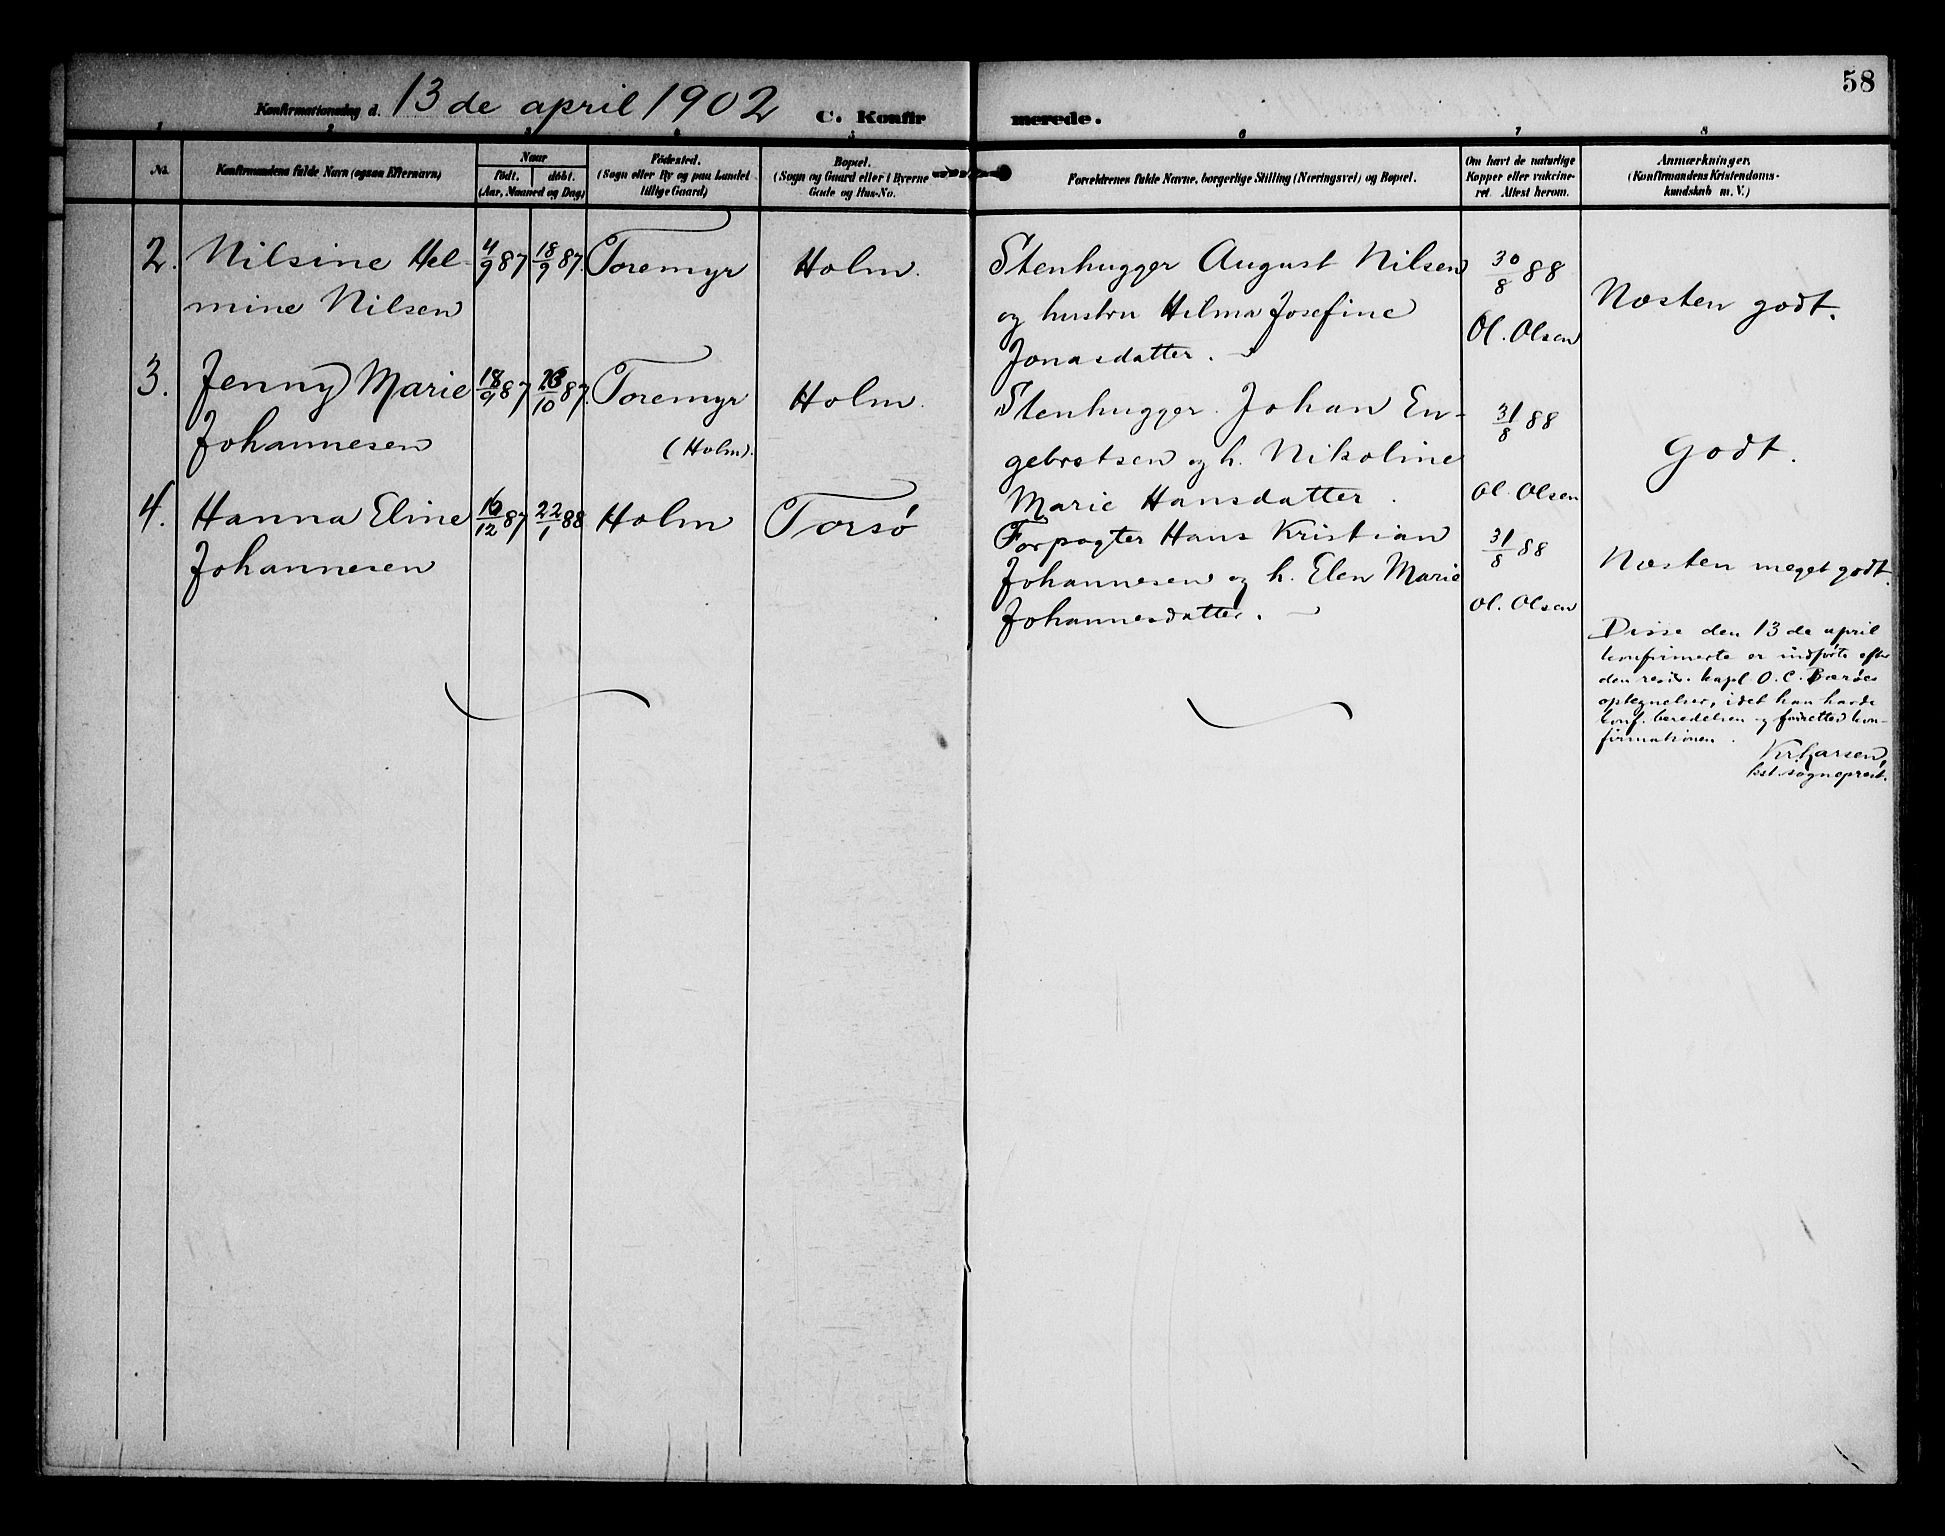 58
Konfirmationsdag d. 13 de april 1902 C. Konfirmerede.
1 2 3 4 5 6 7 8
No.
Konfirmandens fulde Navn (ogsaa Efternavn)
Naar
født. døbt.
(Aar, Maaned og Dag)
Fødested.
(Sogn eller By og paa Landet
tillige Gaard)
Bopæl.
(Sogn og Gaard eller i Byerne
Gade og Hus-No.
Forældrenes fulde Navne, borgerlige Stilling (Næringsvei) og Bopæl.
Om havt de naturlige
Kopper eller vakcine-
ret. Attest herom.
Anmærkninger.
(Konfirmandens Kristendoms-
kundskab m. V.)
2. Nilsine Hel- 4/9 87 18/9 87. Toremyr Holm.
mine Nilsen
Stenhugger August Nilsen
og hustru Hilma Josefine
Jonasdatter.
30/8 88
Ol. Olsen
Næsten godt.
3. Jenny Marie 18/9 87 /10 87. Toremyr Holm.
Johannesen (Holm).
Stenhugger Johan En-
gebretsen og h. Nikoline
Marie Hansdatter.
31/8 88
Ol. Olsen
Godt.
4. Hanna Eline 16/12 87 22/1 88 Holm Torsø
Johannesen
Forpagter Hans Kristian
Johannesen og h. Elen Marie
Johannesdatter.
31/8 88
Ol. Olsen
Næsten meget godt.
Disse den 13 de april
konfirmerte er indførte efter
den resid. kapl. O. C. Bærøes
optegnelser, idet han havde
konf. beredelsen og forrettet kon-
firmationen.
Kr. Larsen,
kst. sogneprest.